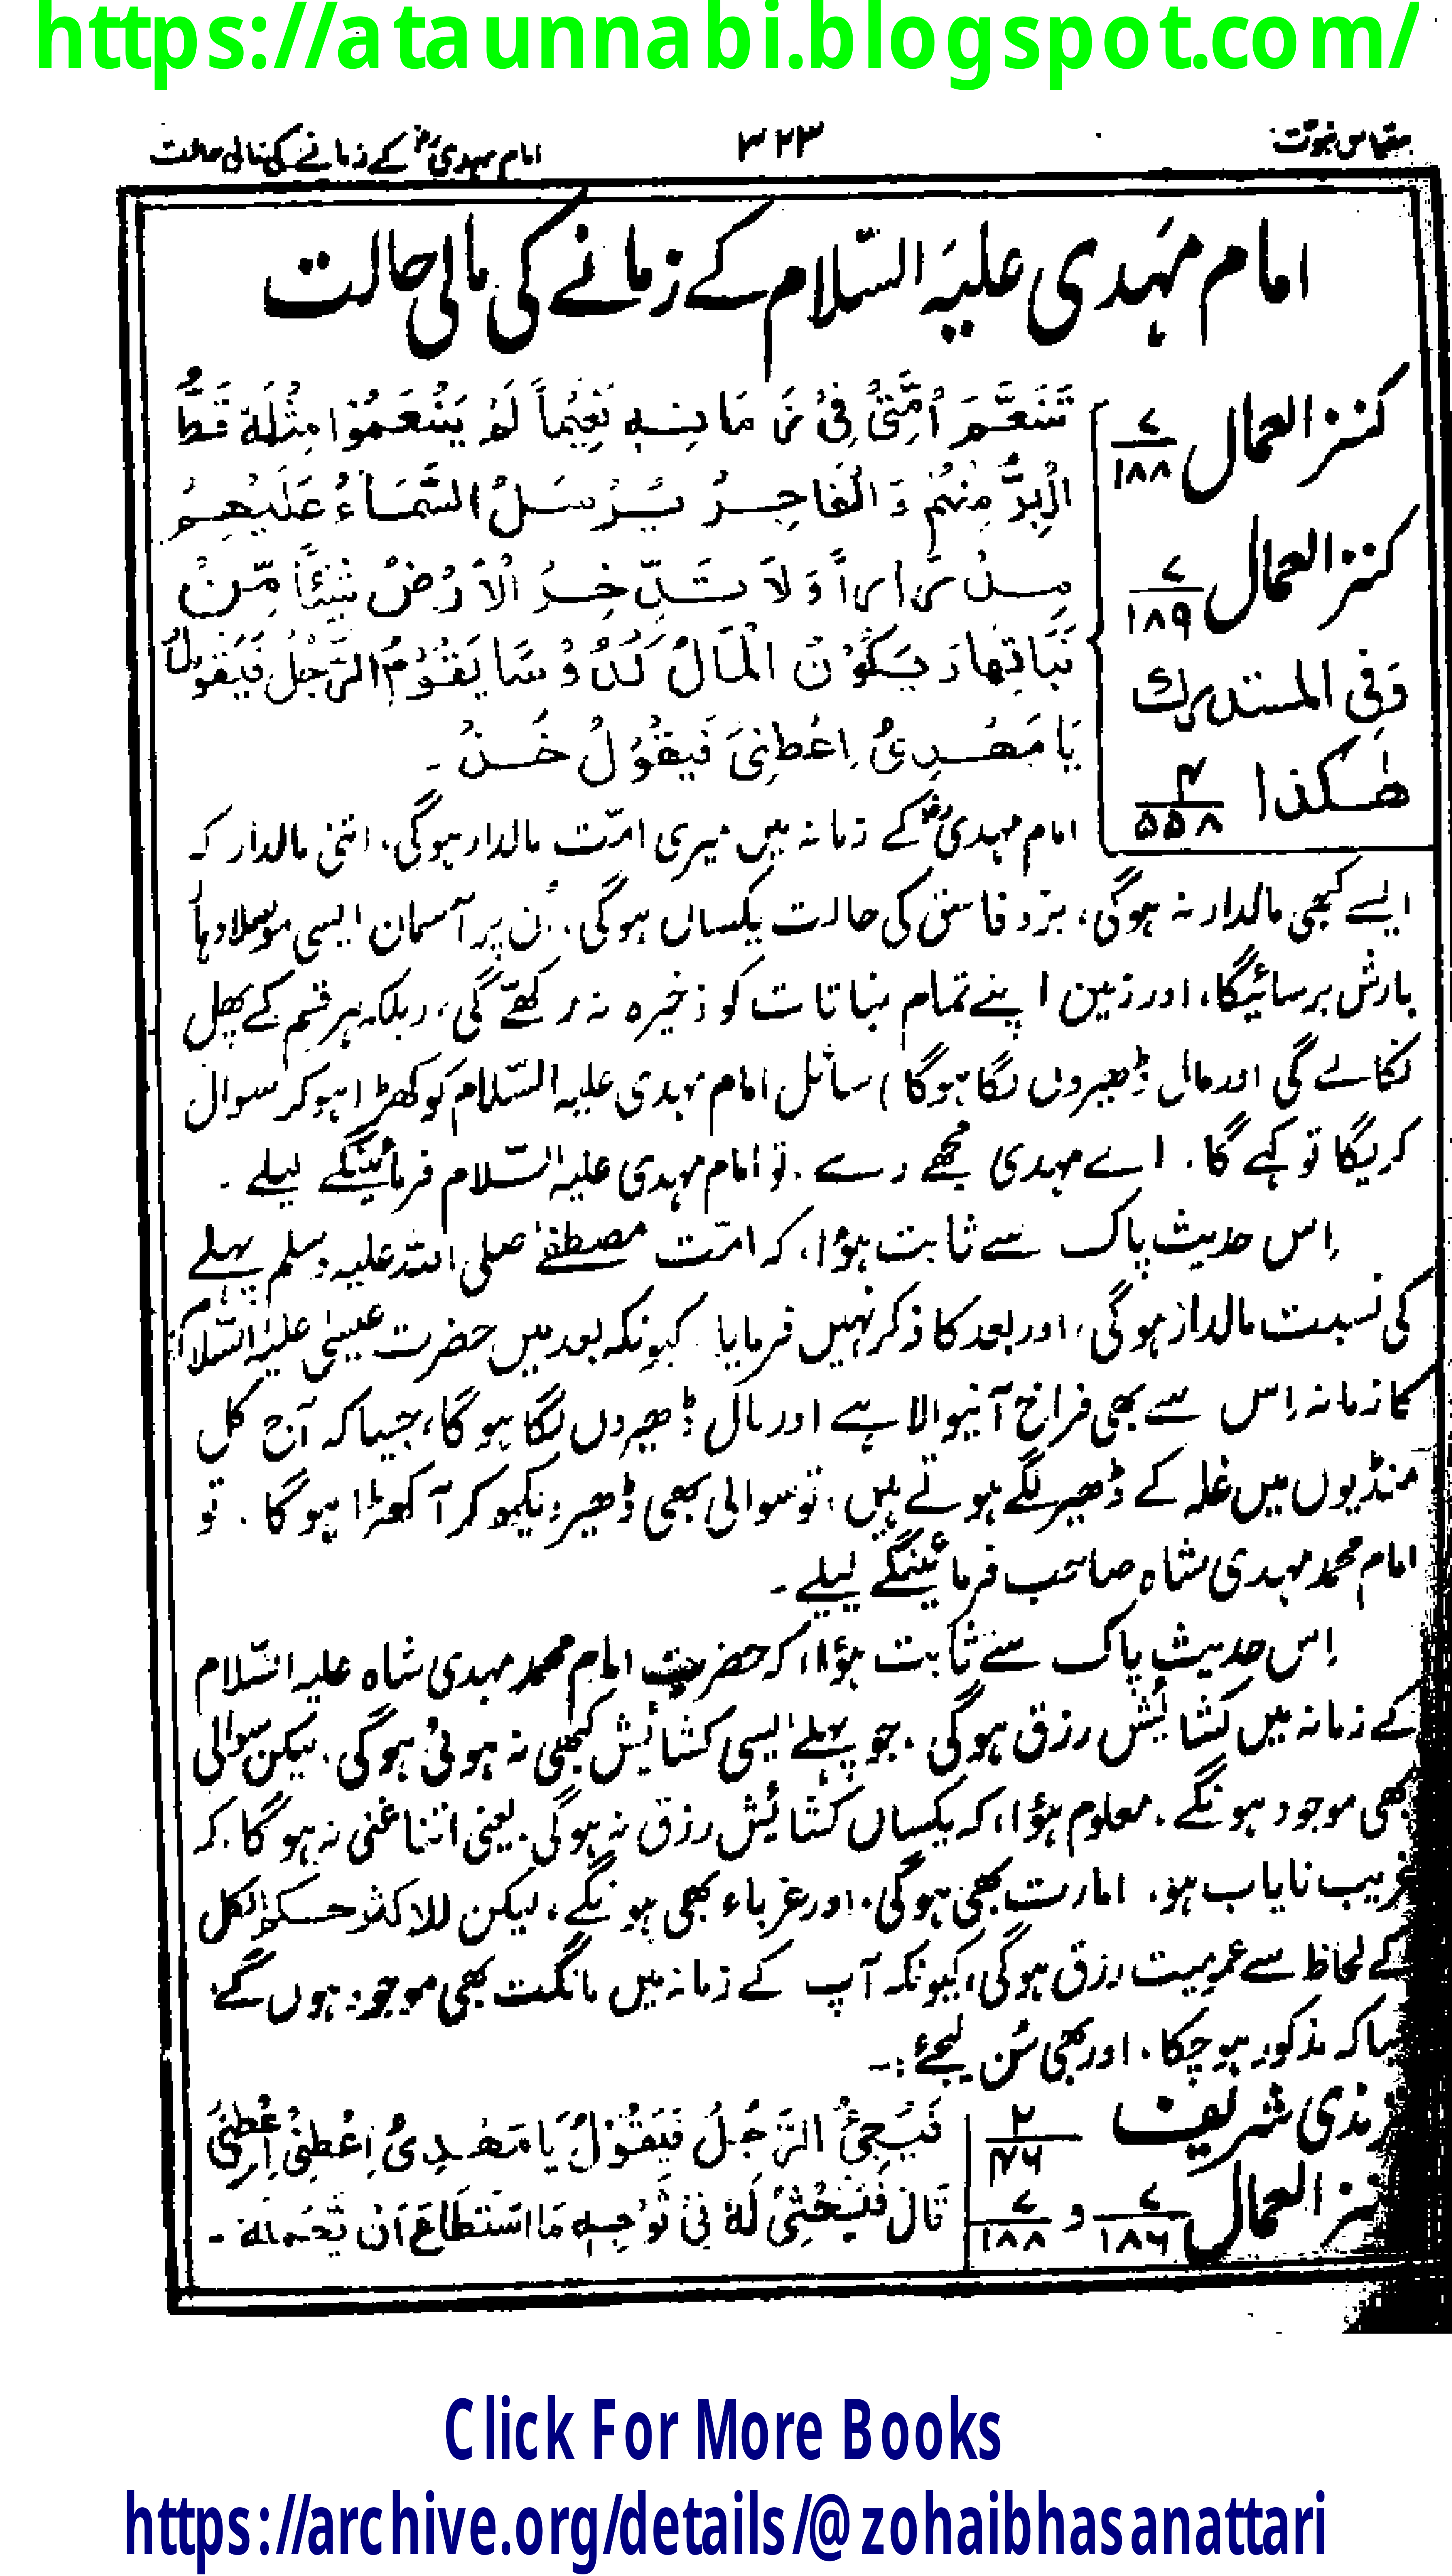 https://ataunnabi.blogspot.com/
مقیاس نبوت
۳۲۳
امام مہدیؓ کے زمانے کی مالی حالت
امام مہدی علیہ السّلام کے زمانے کی مالی حالت
کنز العمال ۷/۱۸۸
کنز العمال ۷/۱۸۹
وَفِی المستدرک
ھٰکذا ۴/۵۵۸
تَنَعَّمَ اُمَّتِیْ فِیْ زَمَانِہٖ نَعِیْماً لَمْ یَنْعَمُوْا مِثْلَہٗ قَطُّ
الْبِرُّ مِنْہُمْ وَ الْفَاجِرُ یُرْسَلُ السَّمَاءُ عَلَیْھِمْ
مِدْرَاراً وَ لَا تَدَّخِرُ الْاَرْضُ شَیْئًا مِّنْ
نَّبَاتِھَا وَ یَکُوْنُ الْمَالُ کُدُوْسًا یَقُوْمُ الرَّجُلُ فَیَقُوْلُ
یَا مَھْدِیُّ اِعْطِنِیْ فَیَقُوْلُ خُذْ ۔
امام مہدیؓ کے زمانہ میں میری امّت مالدار ہوگی، اتنی مالدار کہ
ایسے کبھی مالدار نہ ہوگی، بَرّ و فاسق کی حالت یکساں ہو گی. اُن پر آسمان ایسی موسلادہار
بارش برسائیگا، اور زمین اپنے تمام نباتات کو ذخیرہ نہ رکھّے گی، (بلکہ ہر قسم کے پھل
نکالے گی اور مال ڈھیروں لگا ہوگا) سائل امام مہدی علیہ السّلام کو کھڑا ہوکر سوال
کریگا تو کہے گا. اے مہدی مجھے دے. تو امام مہدی علیہ السّلام فرمائینگے لیلے ۔
اِس حدیث پاک سے ثابت ہؤا، کہ امّت مصطفےٰ صلی اللہ علیہ وسلم پہلے
کی نسبت مالدار ہوگی، اور بعد کا ذکر نہیں فرمایا کیونکہ بعد میں حضرت عیسیٰ علیہ السّلام
کا زمانہ اِس سے بھی فراخ آنیوالا ہے اور مال ڈھیروں لگا ہو گا، جیسا کہ آج کل
منڈیوں میں غلہ کے ڈھیر لگے ہوتے ہیں، تو سوالی بھی ڈھیر دیکھو کر آ کھڑا ہو گا. تو
امام محمد مہدی شاہ صاحب فرمائینگے لیلے ۔
اِس حدیث پاک سے ثابت ہؤا، کہ حضرت امام محمد مہدی شاہ علیہ السّلام
کے زمانہ میں کشائش رزق ہوگی. جو پہلے ایسی کشائیش کبھی نہ ہوئی ہوگی. لیکن سوالی
بھی موجود ہونگے. معلوم ہؤا، کہ یکساں کشائیش رزق نہ ہوگی. یعنی اتنا غنی نہ ہو گا. کہ
غریب نایاب ہو. امارت بھی ہوگی. اور غرباء بھی ہونگے، لیکن للاکثر حکم الکل
کے لحاظ سے عمومیت رزق ہوگی، کیونکہ آپ کے زمانہ میں مانگت بھی موجود ہوں گے
کہ مذکور ہو چکا. اور بھی سُن لیجئے :-
ترمذی شریف ۲/۴۶
کنز العمال ۷/۱۸۶ و ۷/۱۸۸
فَیَجِیْئُ الرَّجُلُ فَیَقُوْلُ یَا مَھْدِیُّ اِعْطِنِیْ اِعْطِنِیْ
قَالَ فَیَحْثِیْ لَہٗ فِیْ ثَوْبِہٖ مَا اسْتَطَاعَ اَنْ یَّحْمِلَہٗ ۔
Click For More Books
https://archive.org/details/@zohaibhasanattari